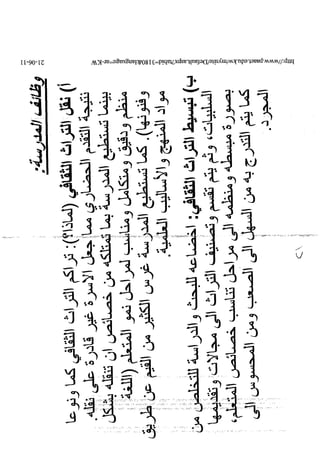 http://www.paaet.edu.kw/mysite/Default.aspx?tabid=3180&language=ar-KW
21-06-11
وظائف المدرسة:
أ) نقل التراث الثقافي (لماذا؟): تراكم التراث الثقافي كما ونوعا
نتيجة التقدم الحضاري مما جعل الأسرة غير قادرة على نقله.
بينما تستطيع المدرسة بما تمتلكه من خصائص ان تنقله بشكل
منظم ودقيق ومتكامل ومناسب لمراحل نمو المتعلم (اللغة
وفنونها). كما تستطيع المدرسة غرس الكثير من القيم عن طريق
مواد المنهج والأساليب العلمية.
ب) تبسيط التراث الثقافي: اخضاعه للبحث والدراسة للتخلص من
السلبيات، ثم يتم تقسيم وتصنيف التراث الى مجالات وتقديمها
بصورة مبسطه ومنظمه الى مراحل تناسب خصائص المتعلم،
كما يتم التدرج به من السهل الى الصعب ومن المحسوس الى
المجرد.